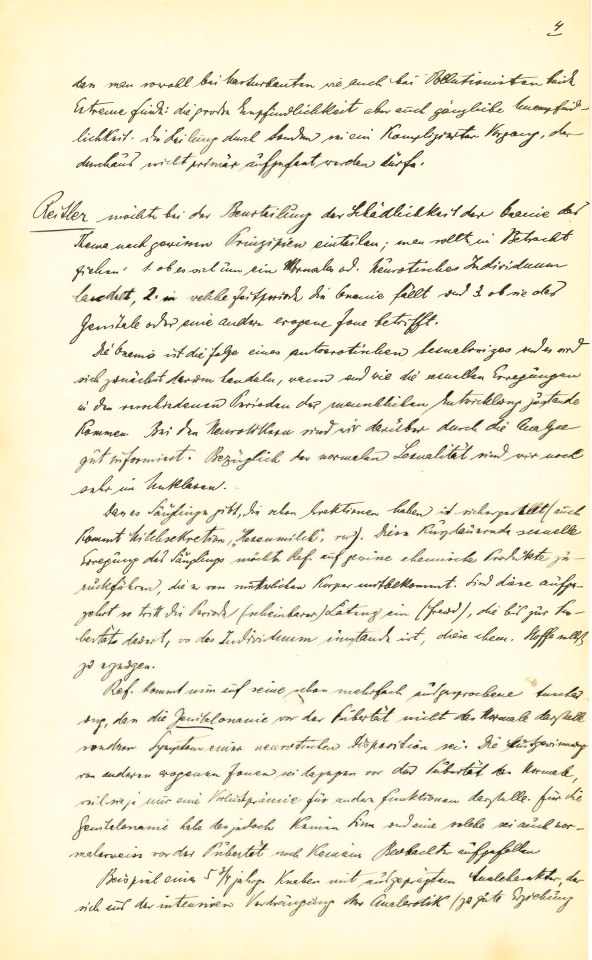 4
dass man sowohl bei Masturbanten wie auch bei Pollutionisten beide
Extreme finde: die große Empfindlichkeit aber auch gänzliche Unempfind-
lichkeit. Die Heilung durch Sonden sei ein komplizierter Vorgang, der
durchaus nicht primär aufgefasst werden dürfe.
Reitler möchte bei der Beurteilung der Schädlichkeit der Onanie das
Thema nach gewissen Prinzipien einteilen; man sollte in Betracht
ziehen: 1. ob es sich um ein Normales od. Neurotisches Individuum
handelt, 2. in welche Zeitperiode die Onanie fällt und 3. ob sie das
Genitale oder eine andere erogene Zone betrifft.
Die Onanie ist die Folge eines autoerotischen Sexualreizes und es wird
sich zunächst darum handeln, wann und wie die sexuellen Erregungen
in den verschiedenen Perioden der menschlichen Entwicklung zustande
kommen. Bei den Neurotikern sind wir darüber durch die Analyse
gut informiert. Bezüglich der normalen Sexualität sind wir noch
sehr im Unklaren.
Dass es Säuglinge gibt, die schon Erektionen haben ist sichergestellt (auch
kommt Milchsekretion, „Hexenmilch", vor). Diese kurzdauernde sexuelle
Erregung des Säuglings möchte Ref. auf gewisse chemische Produkte zu-
rückführen, die er vom mütterlichen Körper mitbekommt. Sind diese aufge-
zehrt so tritt die Periode (scheinbarer) Latenz ein (Freud), die bis zur Pu-
bertät dauert, wo das Individuum imstande ist, diese chem. Stoffe selbst
zu erzeugen.
Ref. kommt nun auf seine schon mehrfach ausgesprochene Anschau-
ung, dass die Genitalonanie vor der Pubertät nicht das Normale darstelle
sondern Symptom einer neurotischen Disposition sei. Die Lustgewinnung
von anderen erogenen Zonen sei dagegen vor der Pubertät das Normale,
weil sie ja nur eine Vorlustprämie für andere Funktionen darstelle. Für die
Genitalonanie habe das jedoch keinen Sinn und eine solche sei auch nor-
malerweise vor der Pubertät noch keinem Beobachter aufgefallen
Beispiel eines 5 3/4 jähr. Knaben mit ausgeprägtem Analcharakter, der
sich aus der intensiven Verdrängung der Analerotik (zu gute Erziehung